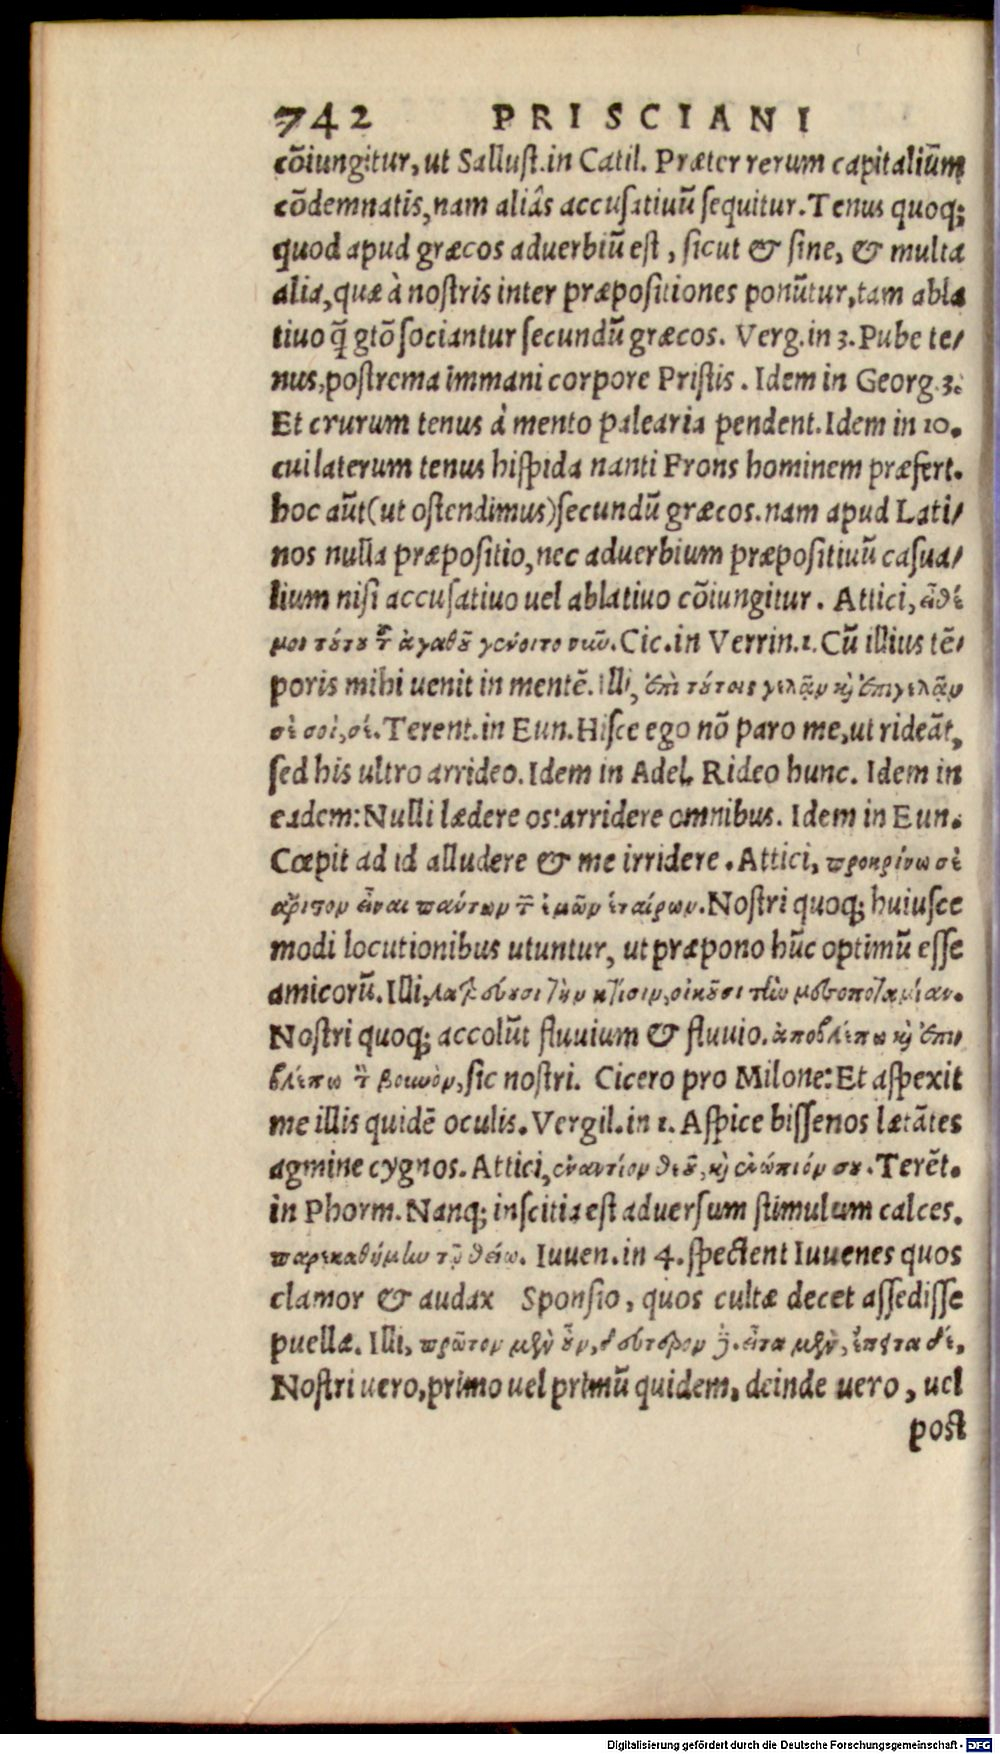 742 PRISCIANI
cōiungitur, ut Sallust. in Catil. Præter rerum capitaliũm
cōdemnatis, nam aliâs accusatiuũ sequitur. Tenus quoq;
quod apud græcos aduerbiũ est, sicut & sine, & multa
alia, quæ à nostris inter præpositiones ponũtur, tam abla
tiuo q̃ gtō sociantur secundũ græcos. Verg. in 3. Pube te/
nus, postrema immani corpore Pristis. Idem in Georg. 3.
Et crurum tenus à mento palearia pendent. Idem in 10.
cui laterum tenus hispida nanti Frons hominem præfert.
hoc aũt (ut ostendimus) secundũ græcos. nam apud Lati/
nos nulla præpositio, nec aduerbium præpositiuũ casua/
lium nisi accusatiuo uel ablatiuo cōiungitur. Attici, εἴθέ
μοι τούτου τοῦ ἀγαθοῦ γένοιτο Cic. in Verrin. 1. Cũ illius tē/
poris mihi uenit in mentē. Illi, ἐπὶ τούτοις γελᾶν καὶ ἐπιγελᾶν
σὲ σοί, σέ. Terent. in Eun. Hisce ego nō paro me, ut rideāt,
sed his ultro arrideo. Idem in Adel. Rideo hunc. Idem in
eadem: Nulli lædere os: arridere omnibus. Idem in Eun.
Cœpit ad id alludere & me irridere. Attici, προκρίνω σὲ
ἄριστον εἶναι πάντων τῶν ἐμῶν ἑταίρων. Nostri quoq; huiusce
modi locutionibus utuntur, ut præpono hũc optimũ esse
amicorũ. Illi, κτίσιν, οἰκοῦσι τὴν μεσοποταμίαν.
Nostri quoq; accolũt fluuium & fluuio. ἀποβλέπω καὶ ἐπι/
βλέπω τὸν βουνὸν, sic nostri. Cicero pro Milone: Et aspexit
me illis quidē oculis. Vergil. in 1. Aspice bissenos lætātes
agmine cygnos. Attici, ἐναντίον θεοῦ, καὶ ἐνώπιόν σου. Terēt.
in Phorm. Nanq; inscitia est aduersum stimulum calces.
παρεκαθήμην τῷ θείῳ. Iuuen. in 4. spectent Iuuenes quos
clamor & audax Sponsio, quos cultæ decet assedisse
puellæ. Illi, πρῶτον μὲν οὖν, δεύτερον δὲ. εἶτα μὲν, ἔπειτα δέ.
Nostri uero, primo uel primũ quidem, deinde uero, uel
post
Digitalisierung gefördert durch die Deutsche Forschungsgemeinschaft - DFG